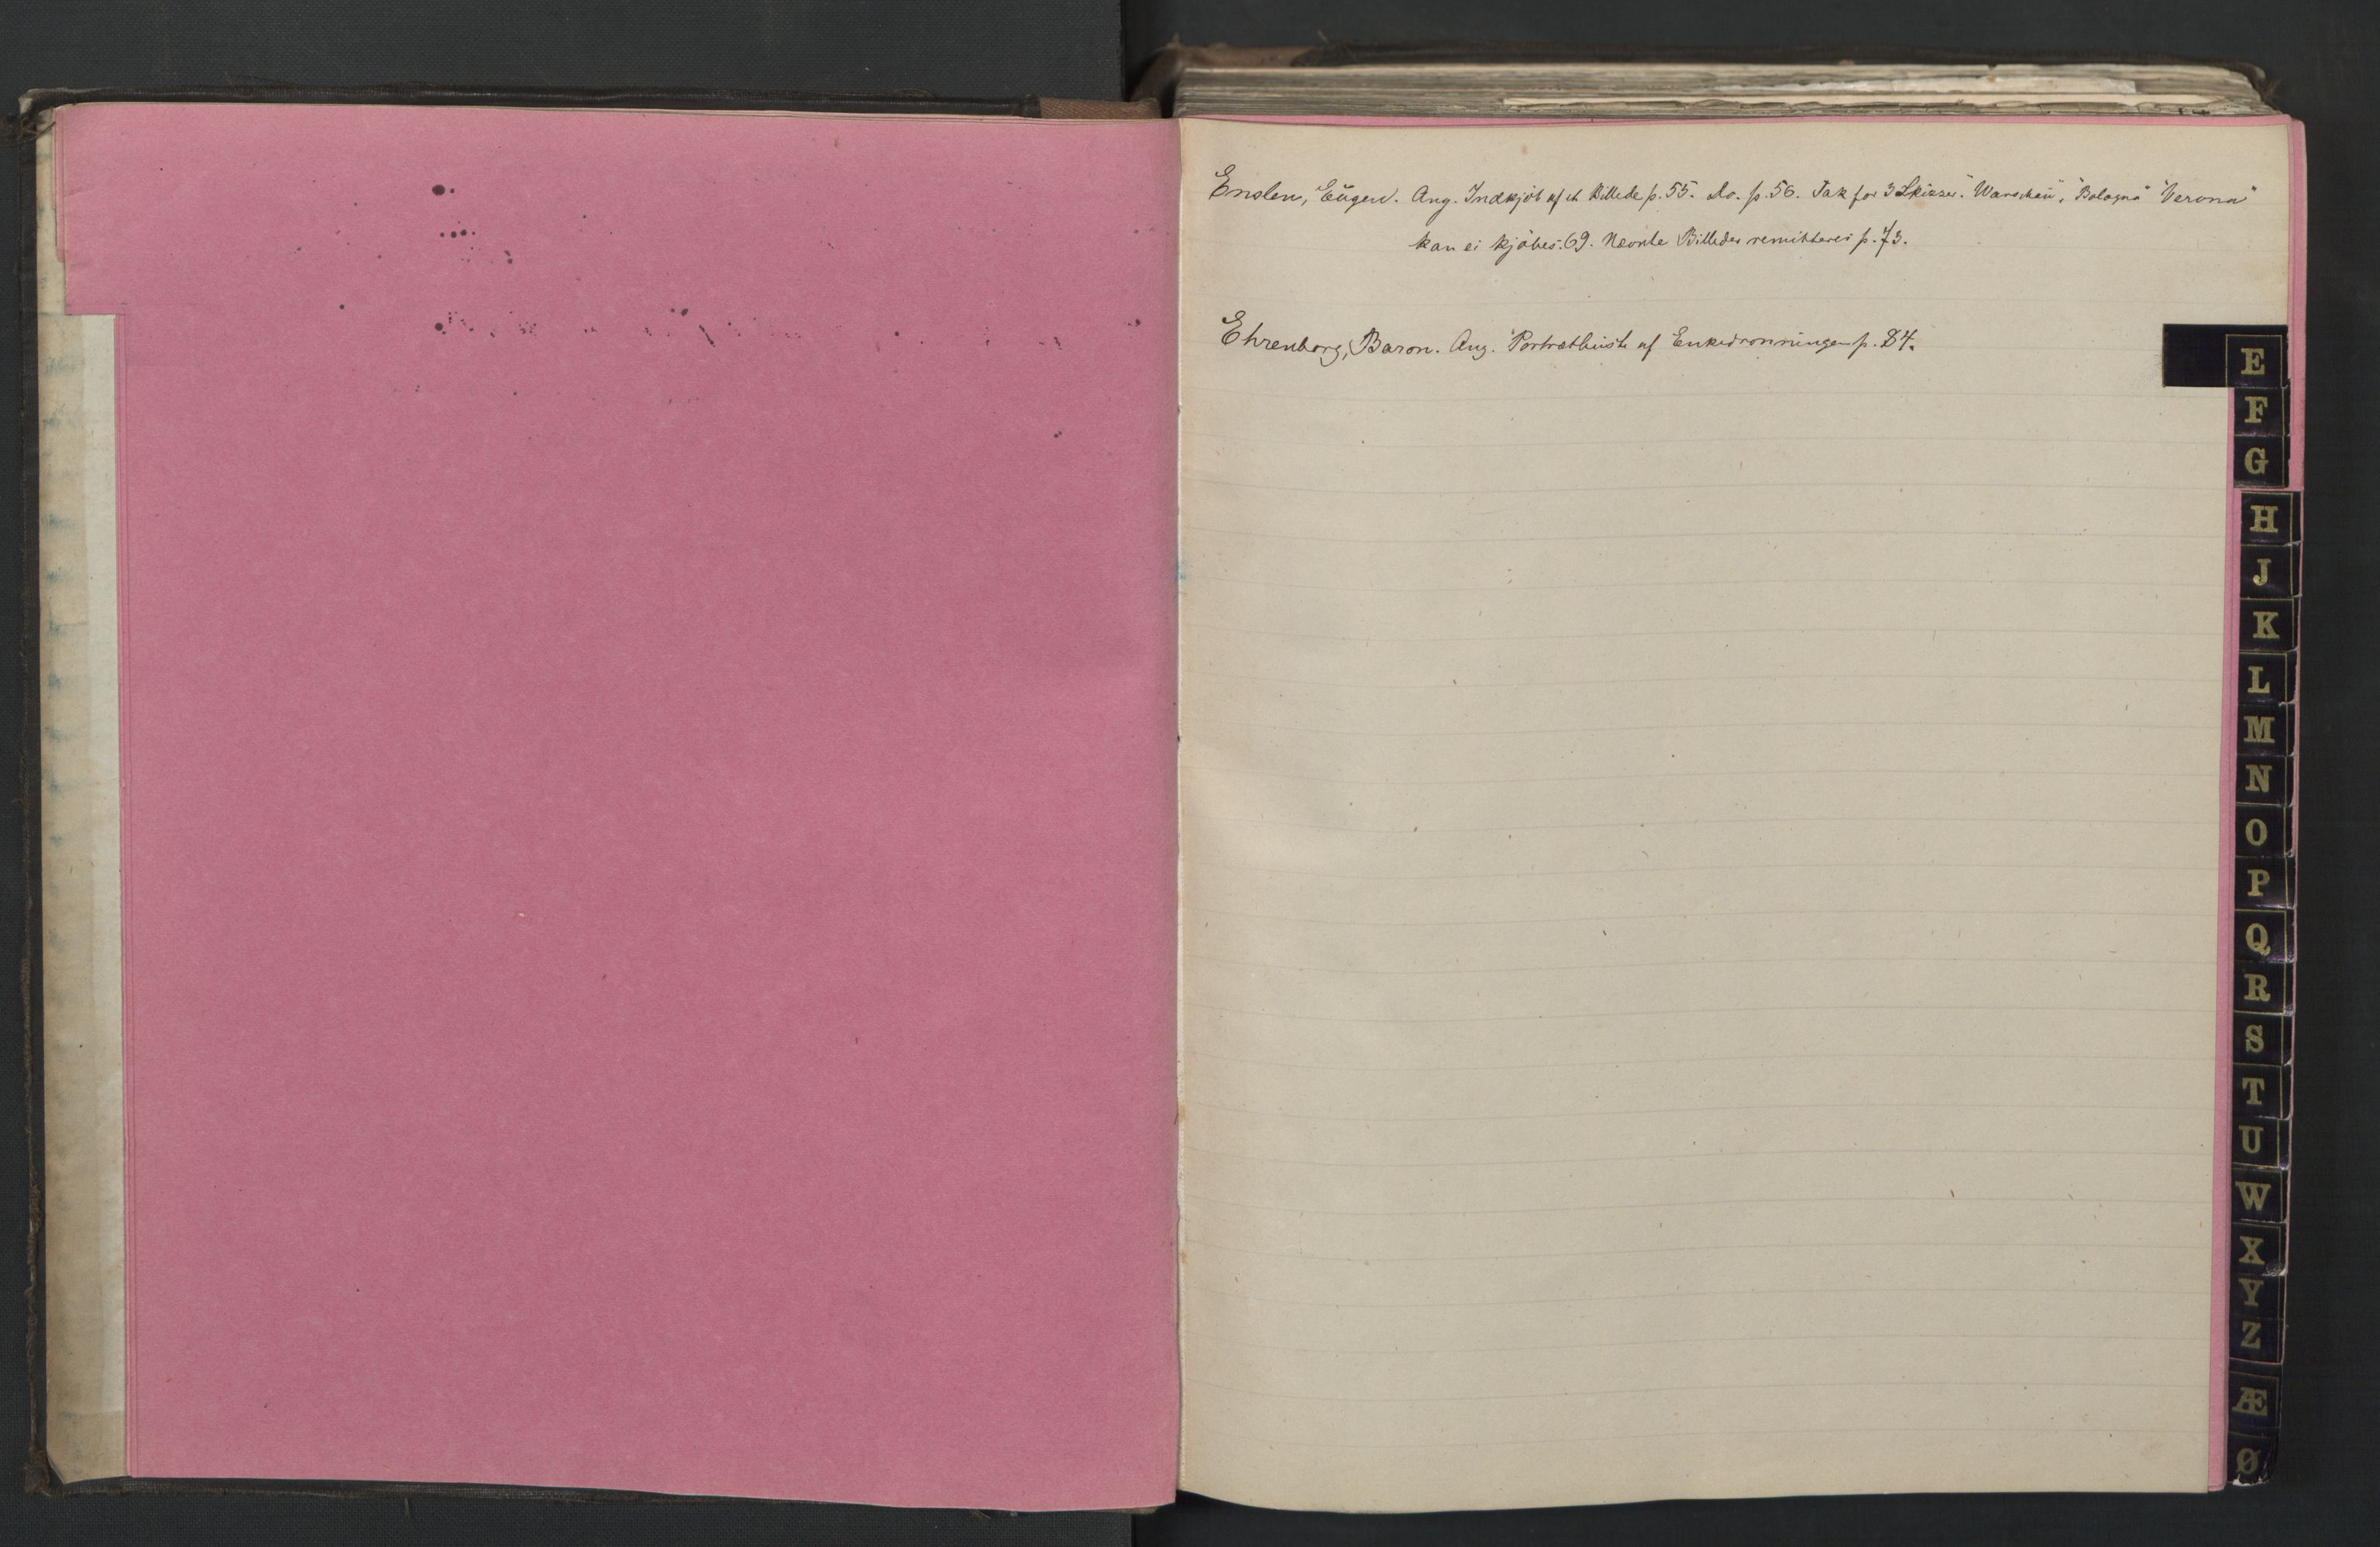 Enslen, Eugen. Ang. Indkjöb af et Billede p. 55. Do. p. 56. Tak for 3 Skizzer. "Warschau", "Bologna" "Verona"
kan ei kjöbes. 69. Nevnte Billeder remitteres p. 73.
Ehrenborg, Baron. Ang. Portrætbuste af Enkedronningen p. 84.
E
F
G
H
J
K
L
M
N
O
P
Q
R
S
T
U
W
X
Y
Z
Æ
Ø